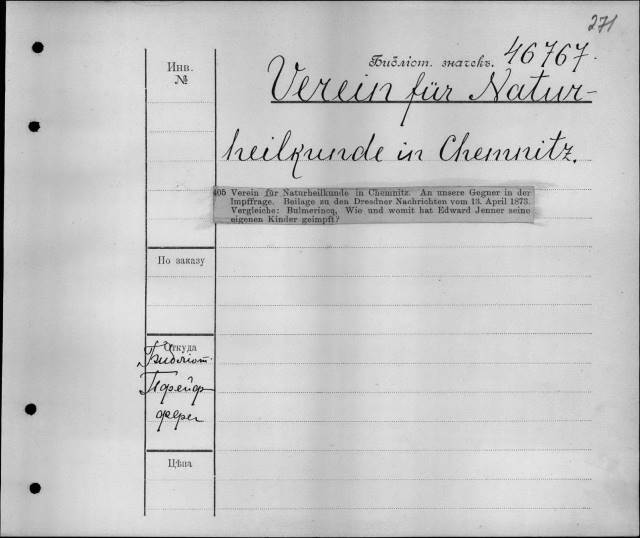 271
Библіот. значекъ. 46767.
Инв.
№
Verein für Natur-
heilkunde in Chemnitz.
405 Verein für Naturheilkunde in Chemnitz. An unsere Gegner in der
Impffrage. Beilage zu den Dresdner Nachrichten vom 13. April 1873.
Vergleiche: Bulmerincq, Wie und womit hat Edward Jenner seine
eigenen Kinder geimpft?
По заказу
Откуда
Библіот.
Пфейф
фера
Цѣна